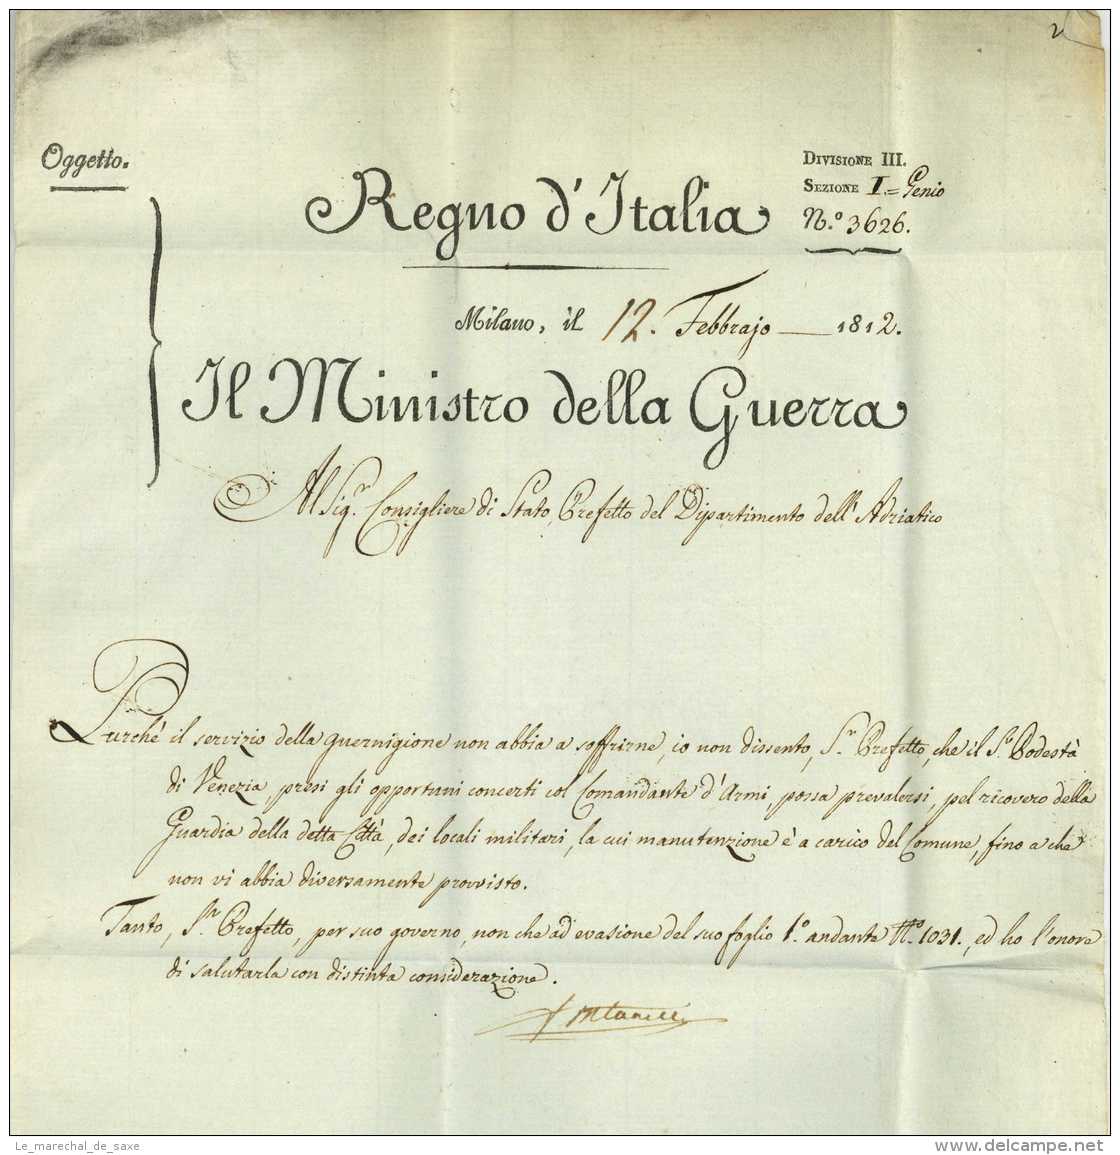 2
Oggetto.
Divisione III.
Sezione I.= Genio
N.º 3626.
Regno d'Italia
Milano, il 12. Febbrajo 1812.
Il Ministro della Guerra
Al Sig.r Consigliere di Stato Prefetto del Dipartimento dell'Adriatico
Purchè il servizio della guernigione non abbia a soffrirne, io non dissento, S.r Prefetto, che il S.r Podestà
di Venezia, presi gli opportuni concerti col Comandante d'Armi, possa prevalersi, pel ricovero della
Guardia della detta Città, dei locali militari, la cui manutenzione è a carico del Comune, fino a che
non vi abbia diversamente provvisto.
Tanto, S.r Prefetto, per suo governo, non che ad evasione del suo foglio 1.º andante N.º 1031., ed ho l'onore
di salutarla con distinta considerazione.
Fontanelli
Le_marechal_de_saxe
delcampe.net